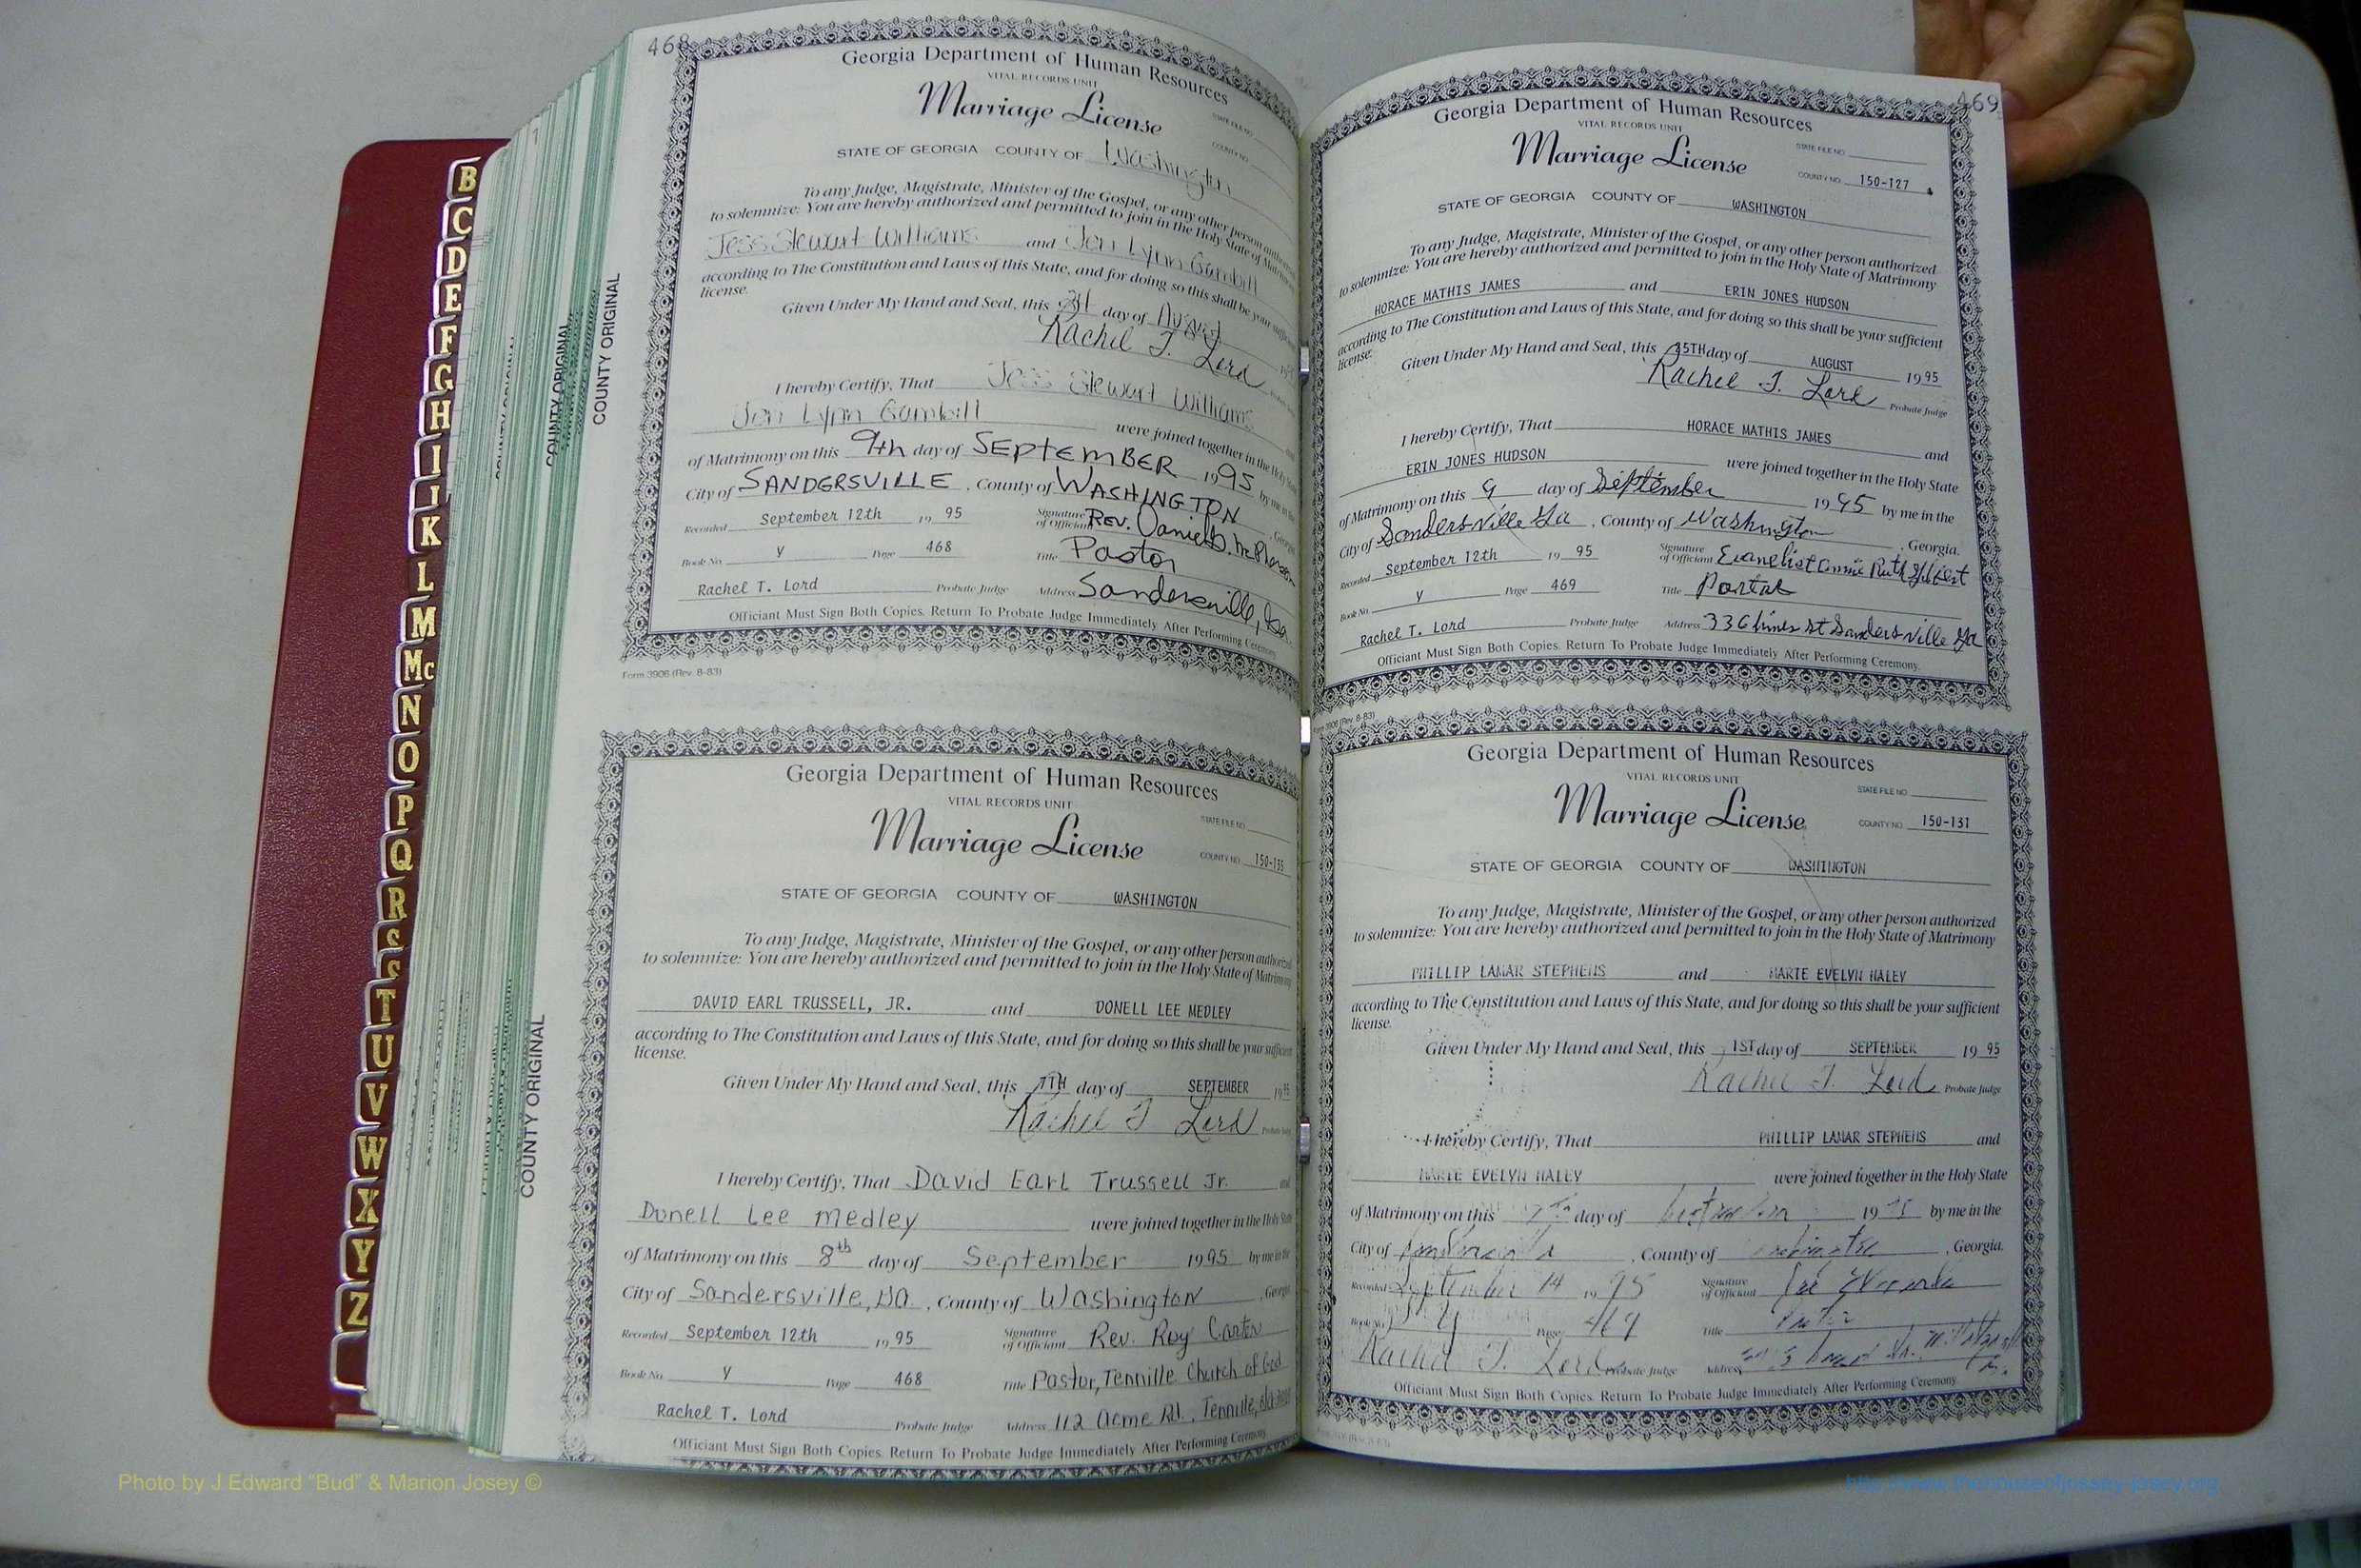 468
Georgia Department of Human Resources
VITAL RECORDS UNIT
Marriage License
STATE FILE NO.
COUNTY NO.
STATE OF GEORGIA COUNTY OF Washington
To any Judge, Magistrate, Minister of the Gospel, or any other person authorized
to solemnize: You are hereby authorized and permitted to join in the Holy State of Matrimony
Jess Stewart Williams and Jen Lynn Gambill
according to The Constitution and Laws of this State, and for doing so this shall be your sufficient
license.
Given Under My Hand and Seal, this 31 day of August
Rachel T. Lord
I hereby Certify, That Jess Stewart Williams
Jen Lynn Gambill were joined together in the Holy
of Matrimony on this 9th day of SEPTEMBER 1995 by me in the
City of SANDERSVILLE, County of WASHINGTON, Georgia
Recorded September 12th 19 95 Signature of Officiant REV. Daniel
Book No. Y Page 468 Title Pastor
Rachel T. Lord Probate Judge Address Sandersville, Ga.
Officiant Must Sign Both Copies. Return To Probate Judge Immediately After Performing Ceremony.
Form 3906 (Rev. 8-83)
Georgia Department of Human Resources
VITAL RECORDS UNIT
STATE FILE NO.
Marriage License
COUNTY NO. 150-135
STATE OF GEORGIA COUNTY OF WASHINGTON
To any Judge, Magistrate, Minister of the Gospel, or any other person authorized
to solemnize: You are hereby authorized and permitted to join in the Holy State of Matrimony
DAVID EARL TRUSSELL, JR. and DONELL LEE MEDLEY
according to The Constitution and Laws of this State, and for doing so this shall be your sufficient
license.
Given Under My Hand and Seal, this 7TH day of SEPTEMBER 1995
Rachel T Lord Probate Judge
I hereby Certify, That David Earl Trussell Jr. and
Donell Lee Medley were joined together in the Holy State
of Matrimony on this 8th day of September 1995 by me in the
City of Sandersville, GA., County of Washington, Georgia
Recorded September 12th 19 95 Signature of Officiant Rev. Roy Carter
Book No. Y Page 468 Title Pastor, Tennille Church of God
Rachel T. Lord Probate Judge Address 112 Acme Rd., Tennille, Ga
Officiant Must Sign Both Copies. Return To Probate Judge Immediately After Performing Ceremony
469
Georgia Department of Human Resources
VITAL RECORDS UNIT
STATE FILE NO.
Marriage License
COUNTY NO. 150-127
STATE OF GEORGIA COUNTY OF WASHINGTON
To any Judge, Magistrate, Minister of the Gospel, or any other person authorized
to solemnize: You are hereby authorized and permitted to join in the Holy State of Matrimony
HORACE MATHIS JAMES and ERIN JONES HUDSON
according to The Constitution and Laws of this State, and for doing so this shall be your sufficient
license.
Given Under My Hand and Seal, this 25TH day of AUGUST 1995
Rachel T. Lord Probate Judge
I hereby Certify, That HORACE MATHIS JAMES and
ERIN JONES HUDSON were joined together in the Holy State
of Matrimony on this 9 day of September 1995 by me in the
City of Sandersville Ga, County of Washington, Georgia.
Recorded September 12th 19 95 Signature of Officiant Evanelist Ruth
Book No. Y Page 469 Title
Rachel T. Lord Probate Judge Address St Sandersville Ga
Officiant Must Sign Both Copies. Return To Probate Judge Immediately After Performing Ceremony.
3906 (Rev. 8-83)
Georgia Department of Human Resources
VITAL RECORDS UNIT
STATE FILE NO.
Marriage License
COUNTY NO. 150-131
STATE OF GEORGIA COUNTY OF WASHINGTON
To any Judge, Magistrate, Minister of the Gospel, or any other person authorized
to solemnize: You are hereby authorized and permitted to join in the Holy State of Matrimony
PHILLIP LAMAR STEPHENS and MARIE EVELYN HALEY
according to The Constitution and Laws of this State, and for doing so this shall be your sufficient
license.
Given Under My Hand and Seal, this 1ST day of SEPTEMBER 19 95
Rachel T. Lord Probate Judge
I hereby Certify, That PHILLIP LAMAR STEPHENS and
MARIE EVELYN HALEY were joined together in the Holy State
of Matrimony on this day of 19 by me in the
City of , County of , Georgia.
Recorded September 14 1995 Signature of Officiant
Book No. Y Page 469 Title
Rachel T. Lord Probate Judge Address
Officiant Must Sign Both Copies. Return To Probate Judge Immediately After Performing Ceremony
COUNTY ORIGINAL
COUNTY ORIGINAL
COUNTY ORIGINAL
B
C
D
E
F
G
H
I
K
L
M
Mc
N
O
P
Q
R
S
T
U
V
W
X
Y
Z
Photo by J Edward “Bud” & Marion Josey ©
http://www.thehouseofjossey-josey.org